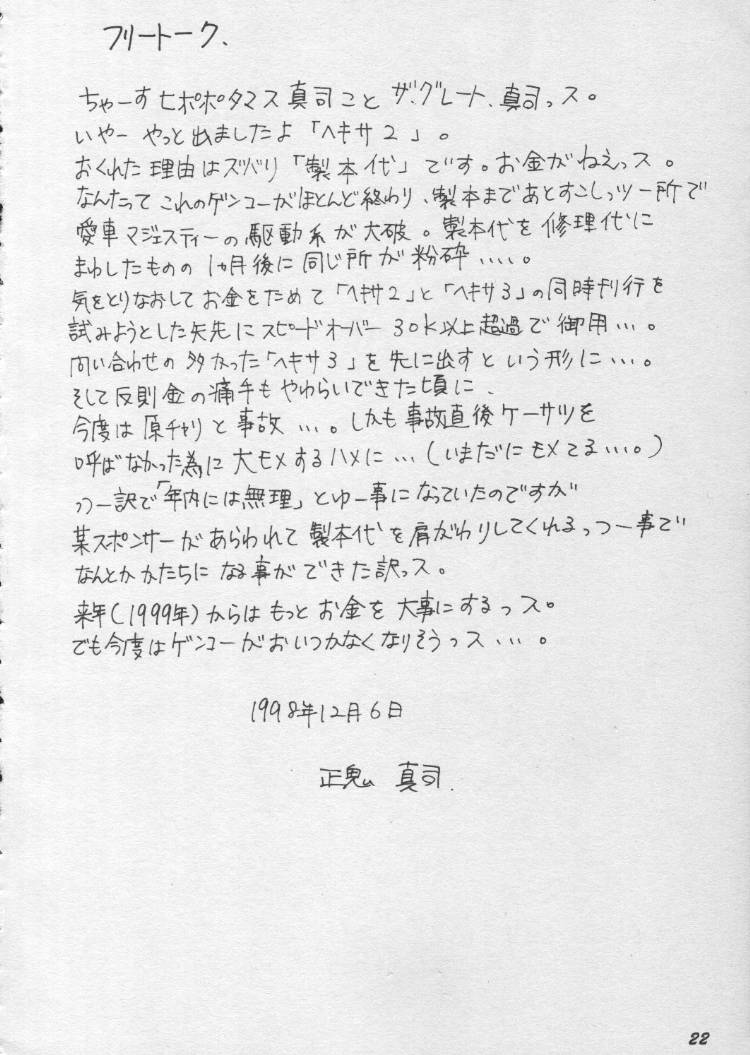 フリートーク、
ちゃーす ヒポポタマス真司こと ザ.グレート、真司っス。
いやー やっと出ましたよ「ヘキサ2」。
おくれた理由はズバリ「製本代」です。お金がねえっス。
なんたって これのゲンコーがほとんど終わり、製本まであとすこしっツー所で
愛車マジェスティーの駆動系が大破。製本代を修理代に
まわしたものの 1ヵ月後に同じ所が粉砕‥‥。
気をとりなおしてお金をためて「ヘキサ2」と「ヘキサ3」の同時刊行を
試みようとした矢先にスピードオーバー 30k以上超過で御用…。
問い合わせの多かった「ヘキサ3」を先に出すという形に…。
そして反則金の痛手もやわらいできた頃に、
今度は原チャリと事故…。しかも事故直後ケーサツを
呼ばなかった為に大モメするハメに…(いまだにモメてる…。)
っつー訳で「年内には無理」とゆー事になっていたのですが
某スポンサーがあらわれて製本代を肩がわりしてくれるっつー事で
なんとかかたちになる事ができた訳っス。
来年(1999年)からはもっとお金を大事にするっス。
でも今度はゲンコーがおいつかなくなりそうっス…。
1998年12月6日
正鬼 真司.
22